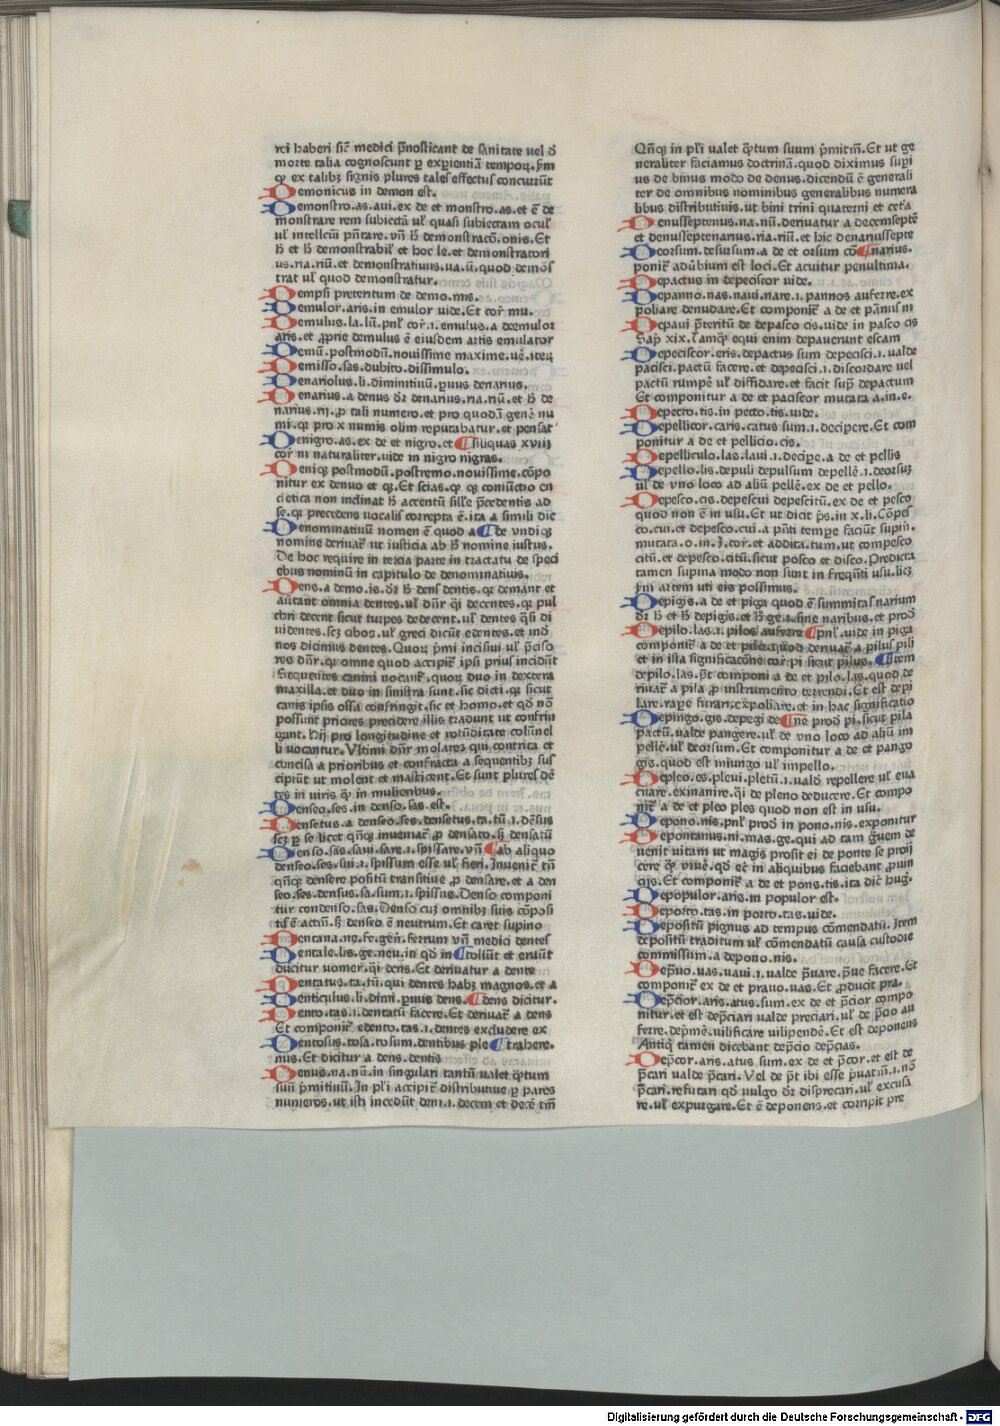 rei haberi sic̄ medici p̄nosticant de sanitate uel d̄
morte talia cognoscunt ꝑ exꝑientiā tempoꝝ. s̄m
ꝙ ex talibꝫ signis plures tales effectus concurrūt
Demonicus in demon est.
Demonstro.as.aui.ex de et monstro.as.et ē de
monstrare rem subiectā ul' quasi subiectam ocul'
ul' intellectui p̄ntare. vn̄ h̄ demonstracō.onis. Et
h̄ et h̄ demonstrabil' et hoc le. et demonstratori
us.ria.riū. et demonstratiuus.ua.ū. quod demōs
trat ul' quod demonstratur.
Dempsi preteritum de demo.mis.
Demulor.aris.in emulor uide. Et cor̄ mu.
Demulus.la.lū. pnl' cor̄.i.emulus.a deemulor
aris. et ꝓprie demulus ē eiusdem artis emulator
Demū. postmodū. nouissime maxime. ue. iteꝝ
Demisso.sas. dubito. dissimulo.
Denariolus.li. diminitiuū. ꝑuus denarius.
Denarius.a denus dr̄ denarius.ria.riū. et h̄ de
narius.rij. ꝓ tali numero. et pro quodā gene nu
mi. qꝛ pro x numis olim reputabatur. et pensat
Denigro.as. ex de et nigro. et ¶ siliquas xviij
cor̄ ni naturaliter. uide in nigro nigras.
Deniqꝫ postmodū. postremo. nouissime. cōpo
nitur ex denuo et qꝫ. Et scias. ꝙ qꝫ coniūctio en
cletica non inclinat h̄ accentū sill'e p̄cedentis ad
se. qꝛ precedens uocalis correpta ē. ita a simili dic
Denominatiuū nomen ē quod a ¶ de vndiqꝫ
nomine deriuat̄ ut iusticia ab h̄ nomine iustus.
De hoc require in tercia parte in tractatu de speci
ebus nominū in capitulo de denominatiuis.
Dens.a demo.is. dr̄ h̄ dens dentis. qꝛ demant et
autant omnia dentes. ul' dn̄r q̄i decentes. qꝛ pul
chri decent sicut turpes dedecent. ul' dentes q̄si di
uidentes. scꝫ cibos. ul' greci dicūt edentes. et inde
nos dicimus dentes. Quoꝝ p̄mi incisiui ul' p̄ciso
res dn̄r. qꝛ omne quod accipit̄ ipsi prius incidūt
Sequentes canini uocant̄. quoꝝ duo in dextera
maxilla. et duo in sinistra sunt. sic dicti. qꝛ sicut
canis ipsis ossa confringit. sic et homo. et qd̄ nō
possunt priores precidere illis tradunt ut confrin
gant. Hij pro longitudine et rotūditate colūnel
li uocantur. Vltimi dn̄r molares qui contrita et
concisa a prioribus et confracta a sequentibꝫ sus
cipiūt ut molent et masticent. Et sunt plures dē
tes in uiris ꝙ̄ in mulieribus.
Denseo.ses. in denso.sas.est.
Densetus.a denseo.ses. densetus.ta.tū.i. dēsus
scꝫ ꝑ se licet qn̄qꝫ inueniat̄ ꝓ densato. sꝫ densatū
Denso.sas.saui.sare.i. spissare. vn̄ ¶ ab aliquo
denseo.ses.sui.i. spissum esse ul' fieri. Inuenit̄ tn̄
qn̄qꝫ densere positū transitiue ꝓ densare. et a den
seo.ses. densus.sa.sum.i. spissus. Denso componi
tur condenso.sas. Denso cuꝫ omnibꝫ suis cōposi
tis ē actiū. sꝫ denseo ē neutrum. Et caret supino
Dentana.ne.fe.gen̄. ferrum vn̄ medici dentes
Dentale.lis.ge.neu. in qd̄ in ¶ tollūt et eruūt
ducitur uomer. q̄i dens. Et deriuatur a dente
Dentatus.ta.tū. qui dentes habꝫ magnos. et a
Denticulus.li.dimi. ꝑuus dens. ¶ dens dicitur.
Dento.tas.i. dentatū facere. Et deriuat̄ a dens
Et componit̄ edento.tas.i. dentes excludere ex
Dentosus.tosa.tosum. dentibus ple ¶ trahere.
nus. Et dicitur a dens.dentis
Denus.na.nū. in singulari tantū ualet q̄ntum
suū p̄mitiuū. In pl'i accipit̄ distributiue ꝑ pares
numeros. ut isti incedūt deni.i. decem et decē tn̄
Qn̄qꝫ in pl'i ualet q̄ntum suum p̄mitiū. Et ut ge
neraliter faciamus doctrinā. quod diximus supi
us de binus modo de denus. dicendū ē generali
ter de omnibus nominibus generalibus numera
libus distributiuis. ut bini trini quaterni et cet̄a
Denusseptenus.na.nū. deriuatur a decemseptē
et denusseptenarius.ria.riū. et hic denariussepte
Deorsum. desursum.a de et orsum cō ¶ narius.
ponit̄ aduerbium est loci. Et acuitur penultima.
Depactus in depeciscor uide.
Depanno.nas.naui.nare.i. pannos auferre. ex
poliare denudare. Et componit̄ a de et pannus ni
Depaui p̄teritū de depasco cis. uide in pasco cis
Sap̄ xix. Tamqꝫ equi enim depauerunt escam
Depeciscor.eris. depactus sum depecisci.i. valde
pacisci. pactū facere. et depecisci.i. discordare uel
pactū rumpe ul' diffidare. et facit sup̄ depactum
Et componitur a de et paciscor mutata a.in.e.
Depecto.tis. in pecto.tis.uide.
Depellicor.caris.catus sum.i. decipere. Et com
ponitur a de et pellicio.cis.
Depelliculo.las.laui.i. deciꝑe.a de et pellis
Depello.lis. depuli depulsum depelle.i. deorsuꝫ
ul' de vno loco ad aliū pelle. ex de et pello.
Depesco.cis. depescui depescitū. ex de et pesco
quod non ē in usu. Et ut dicit p̄s. in x.li. Cōpes
co.cui. et depesco.cui. a p̄nti tempe faciūt supin̄.
mutata.o.in.i.cor̄. et addita.tum. ut compesco
citū. et depesco.citū. sicut posco et disco. Predicta
tamen supina modo non sunt in freq̄nti usu. licꝫ
s̄m artem uti eis possimus.
Depigis.a de et piga quod ē summitas narium
dr̄ h̄ et h̄ depigis. et h̄ ge.i. sine naribus. et prod̄
Depilo.las.i. pilos auferre ¶ pnl'. uide in piga
componit̄ a de et pilo. quod deriuat̄ a pilus pili
et in ista significacōne cor̄ pi sicut pilus. ¶ Item
depilo.las. p̄t componi a de et pilo.las. quod de
riuat̄ a pila ꝓ instrumento terrendi. Et est depi
lare. rape furari. expoliare. et in hac significatio
Depingo.gis. depegi de ¶ ne prod̄ pi. sicut pila
pactū. ualde pangere. ul' de vno loco ad aliū im
pelle. ul' deorsum. Et componitur a de et pango
gis. quod est iniungo ul' impello.
Depleo.es.pleui.pletū.i. uald̄ repellere ul' eua
cuare. exinanire. q̄i de pleno deducere. Et compo
nit̄ a de et pleo ples quod non est in usu.
Depono.nis. pnl' prod̄ in pono.nis. exponitur
Depontanus.ni. mas.ge. qui ad tam gͣuem de
uenit uitam ut magis prosit ei de ponte se proij
cere qͣ viue. qd̄ eciā in aliquibus faciebant ꝓuin
cijs. Et componit̄ a de et pons.tis. ita dic̄ hug.
Depopulor.aris. in populor est.
Deporto.tas. in porto.tas.uide.
Depositū pignus ad tempus cōmendatū. Item
depositū traditum ul' cōmendatū causa custodie
commissum.a depono.nis.
Dep̄uo.uas.uaui.i. ualde p̄uare. p̄ue facere. Et
componit̄ ex de et prauo.uas. Et ꝓducit pra.
Dep̄cior.aris.atus.sum. ex de et p̄cior compo
nitur. et est dep̄ciari ualde preciari. ul' de p̄cio au
ferre. dep̄me. uilificare uilipende. Et est deponens
Antiqͥ tamen dicebant dep̄cio dep̄cias.
Dep̄cor.aris.atus sum. ex de et p̄cor. et est de
p̄cari valde p̄cari. Vel de p̄t ibi esse p̄uatiū.i. nō
p̄cari. refutari qd̄ vulgo dr̄ disprecari. ul' excusa
re. ul' expurgare. Et ē deponens. et corripit pre
Digitalisierung gefördert durch die Deutsche Forschungsgemeinschaft - DFG